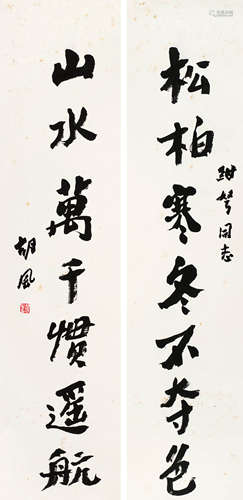 松柏寒冬不夺色
绀弩同志
山水萬千慣遥航
胡風